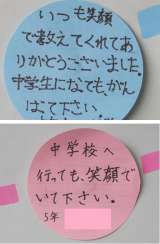 いつも笑顔
で教えてくれてあ
りがとうございました。
中学生になてもがん
ばて下さい
中学校へ
行っても、笑顔で
いて下さい。
5年